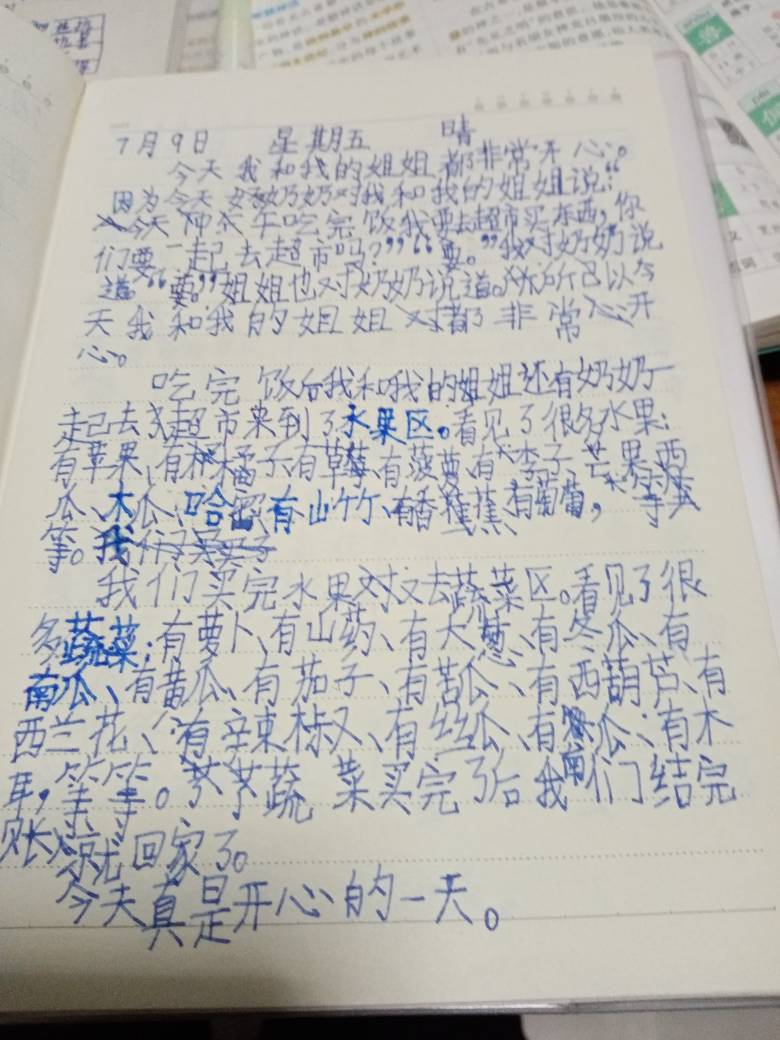 7月9日 星期五 晴
今天我和我的姐姐都非常开心。
因为今天奶奶对我和我的姐姐说:“
今天中午吃完饭我要去超市买东西,你
们要一起去超市吗?”“要。”我对奶奶说
道。“要。”姐姐也对奶奶说道。所以今
天我和我的姐姐都非常开
心。
吃完饭后我和我的姐姐还有奶奶一
起去超市来到了水果区。看见了很多水果:
有苹果、有橘子、有草莓、有菠萝、有李子、芒果、西
瓜、木瓜、哈密、有山竹、有香蕉、有葡萄,等
等。
我们买完水果又去蔬菜区。看见了很
多蔬菜:有萝卜、有山药、有大葱、有冬瓜、有
南瓜、有黄瓜、有茄子、有苦瓜、有西葫芦、有
西兰花、有辣椒、有丝瓜、有南瓜、有木
耳,等等。蔬菜买完了后我们结完
账就回家了。
今天真是开心的一天。